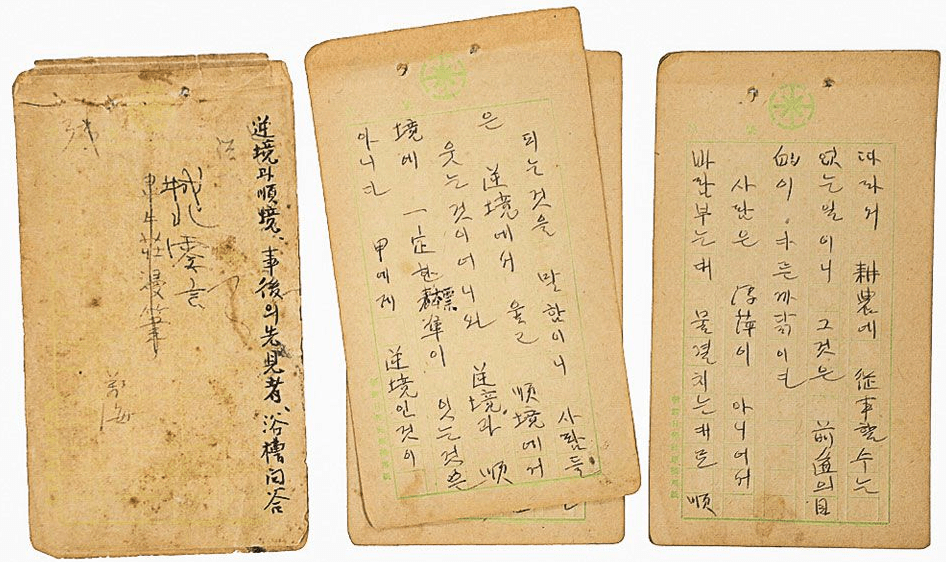 逆境과 順境、事後의 先見者、浴槽問答
城北零言
尋牛莊漫筆
萬海
피는것을 말함이니 사람들
은 逆境에서 울고 順境에서
웃는것이어니와 逆境과 順
境에 一定한 標準이 잇는것은
아니다 甲에게 逆境인것이
따라서 耕農에 從事할수는
없는일이니 그것은 前道의目
的이 다른까닭이다
사람은 浮萍이 아니어서
바람부는대 물결치는대로 順